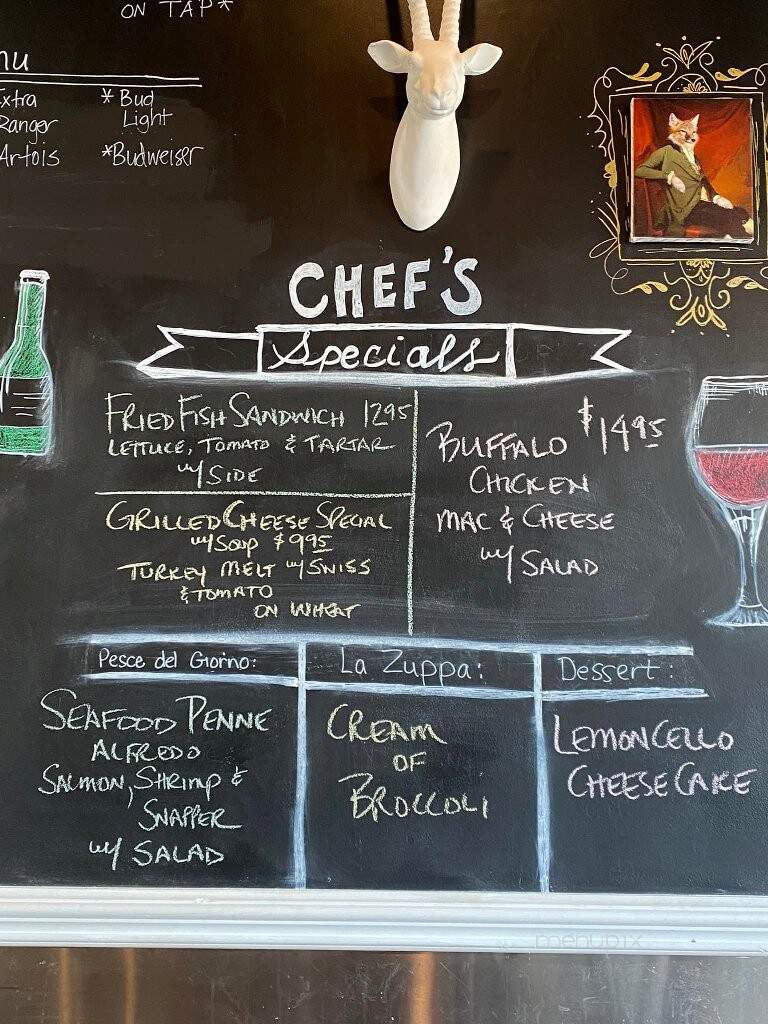 ON TAP*
nu
Extra
Ranger
Artois
* Bud
Light
*Budweiser
CHEF'S
Specials
FRIED FISH SANDWICH 1295
LETTUCE, TOMATO & TARTAR
w/ SIDE
GRILLED CHEESE SPECIAL
w/ SOUP $995
TURKEY MELT w/ SWISS
& TOMATO
ON WHEAT
$1495
BUFFALO
CHICKEN
MAC & CHEESE
w/ SALAD
Pesce del Giorno:
SEAFOOD PENNE
ALFREDO
SALMON, SHRIMP &
SNAPPER
w/ SALAD
La Zuppa:
CREAM
OF
BROCCOLI
Dessert:
LEMONCELLO
CHEESE CAKE
menupix